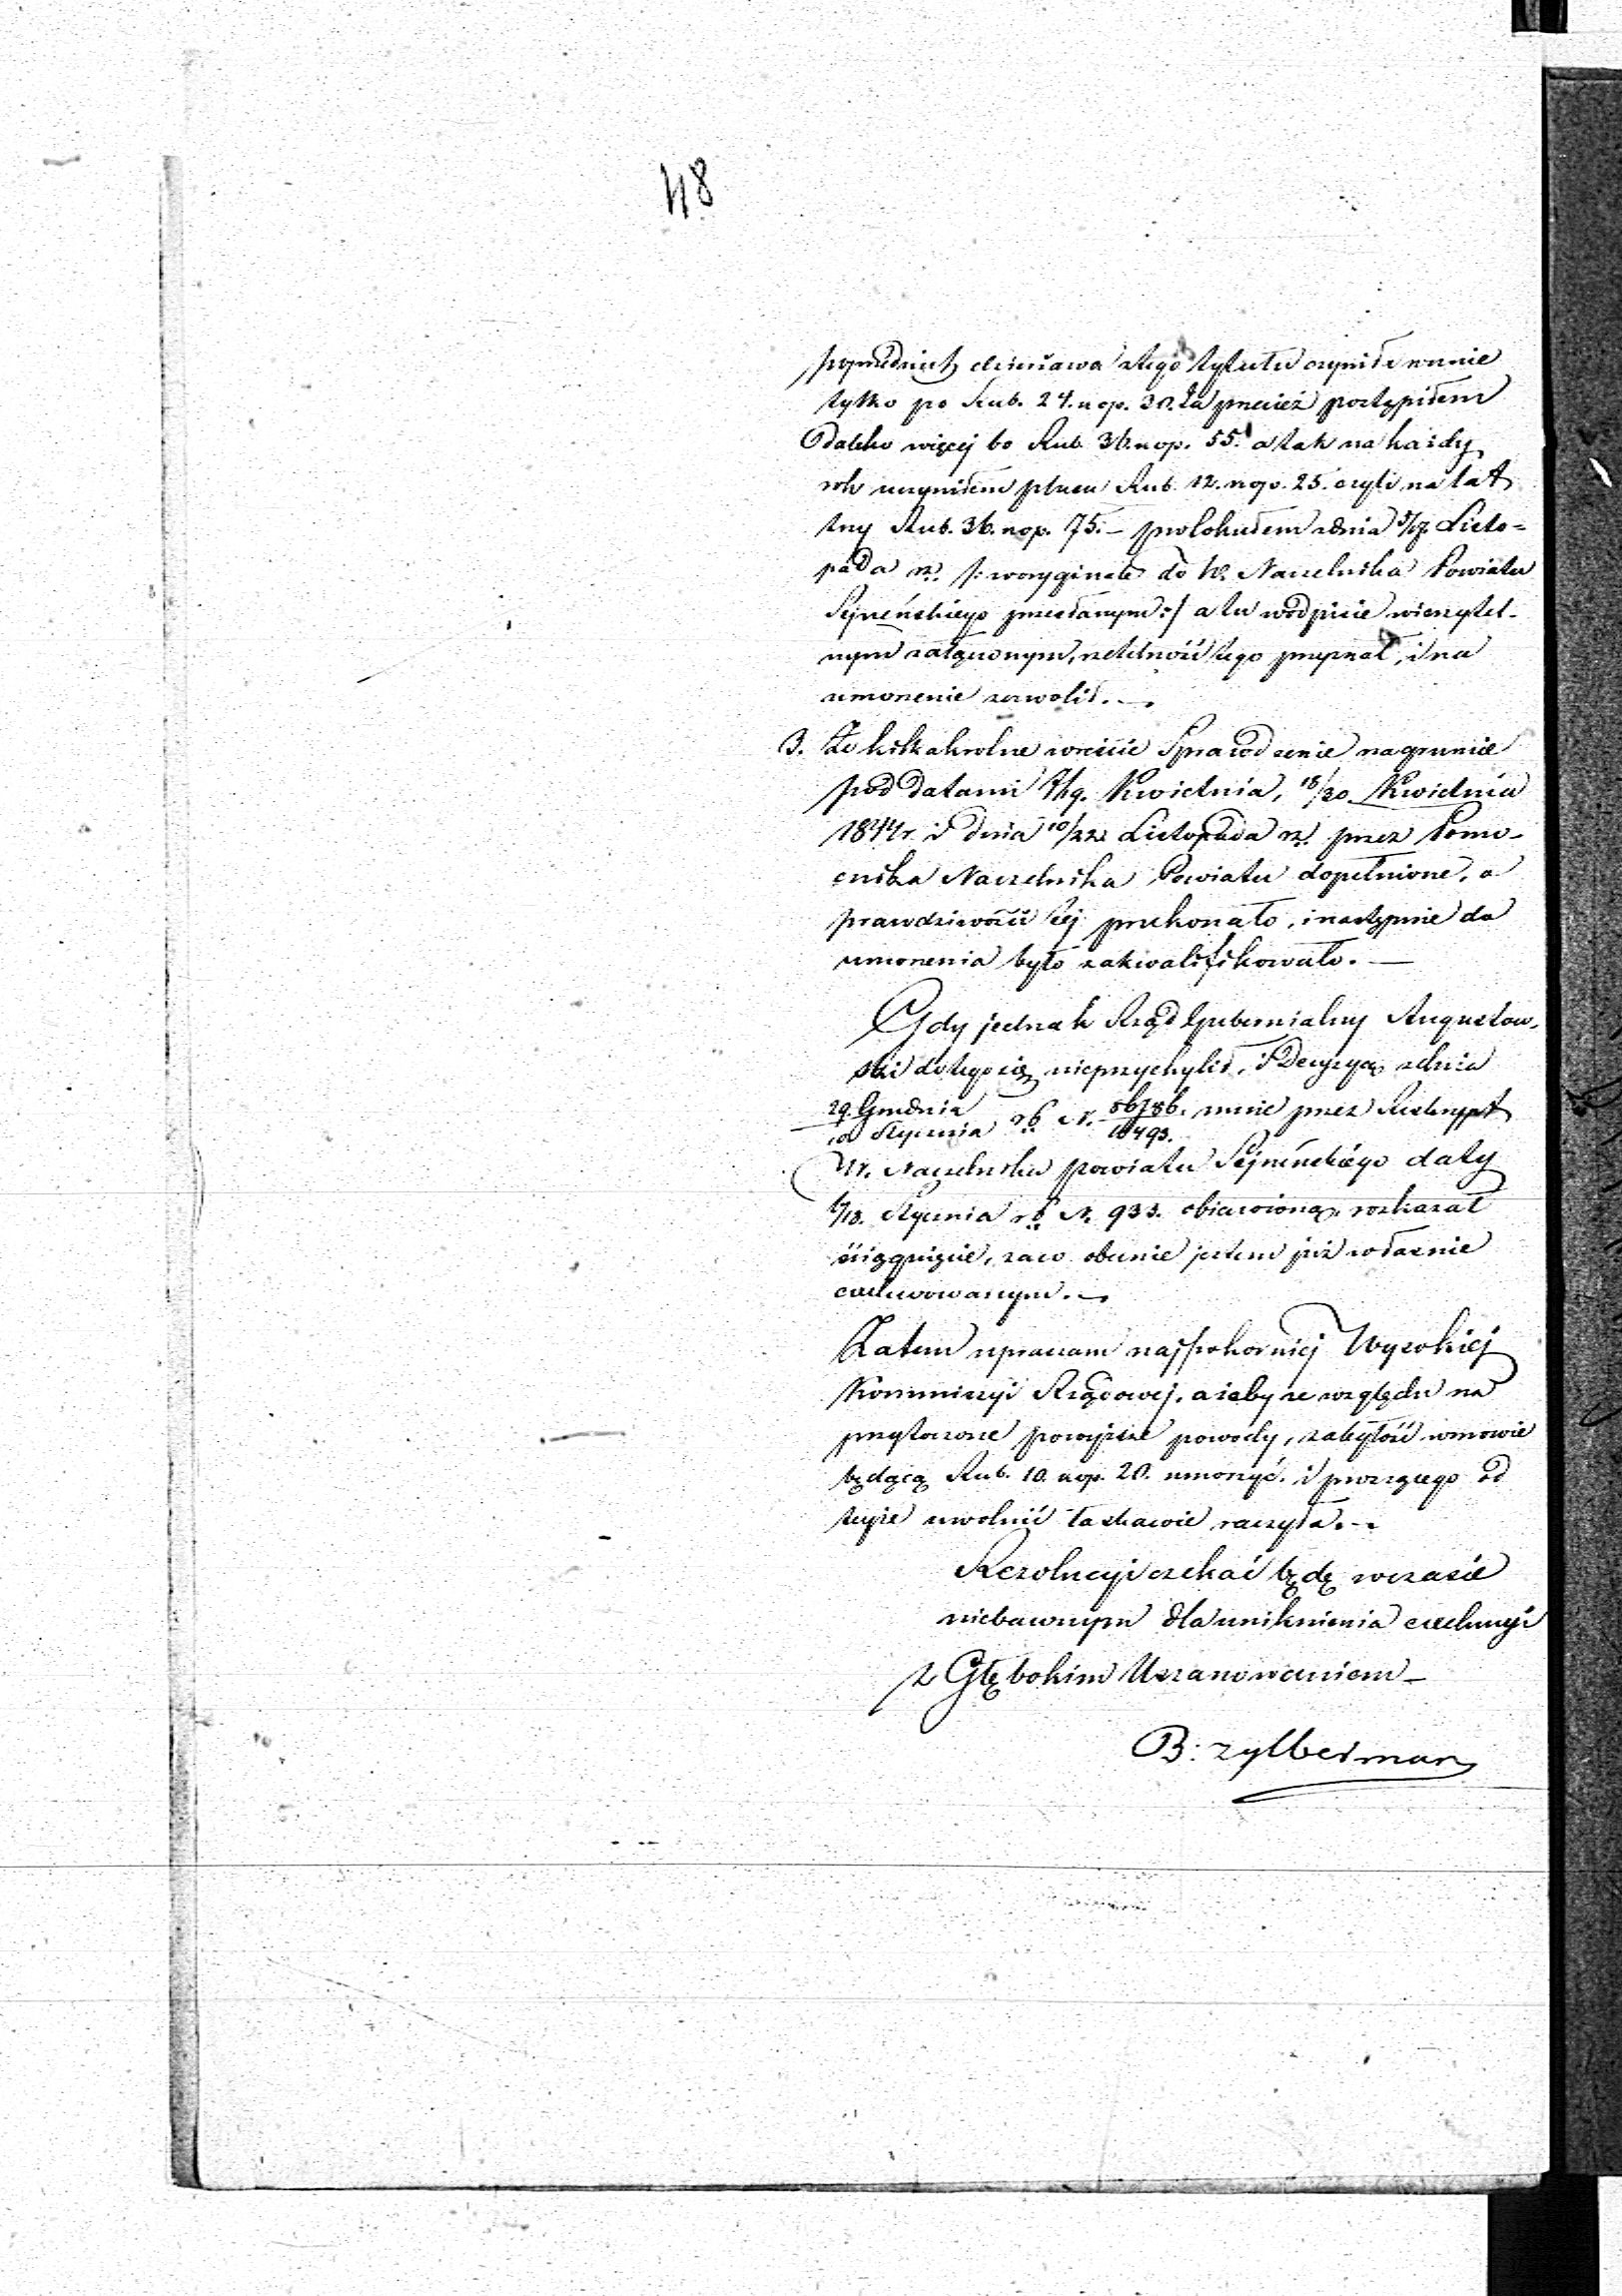 48
poprzednich dzierżawa z tego tytułu czyniła
tylko po Rub. 24. kop. 30. Ja przecież postąpiłem
daleko więcej bo Rub. 36. kop. 55. a tak na każdy
rok uczyniłem plusu Rub. 12. kop. 25. czyli na lat
trzy Rub. 36. kop. 75. – protokułem z dnia 5/17 Listo-
pada /: w oryginale do W. Naczelnika Powiatu
Sejneńskiego przesłanym :/ a tu w odpisie wierzytel-
nym załączonym, rzetelność tego przyznał, i na
umorzenie zezwolił. –
3. Że kilkakrotne wreście Sprawdzenie na gruncie
pod datami Kwietnia, 18/30 Kwietnia
1844 r. i dnia 10/22 Listopada przez Pomo-
cnika Naczelnika Powiatu dopełnione, o
prawdziwości tej przekonało, i następnie do
umorzenia było zakwalifikowało. –
Gdy jednak Rząd Gubernialny Augustow-
ski do tego się nieprzychylił, i Decyzyą z dnia
29 Grudnia / 10 Stycznia rb N. 86786 / 18493. mnie przez Reskrypt
W. Naczelnika powiatu Sejneńskiego daty
1/13. Stycznia rb N. 933. obiawioną, rozkazał
ściągnięcie, zaco obecnie jestem już właśnie
exekwowanym. –
Zatem upraszam najpokorniej Wysokiej
Kommissyi Rządowej, ażeby ze względu na
przytoczone powyższe powody, zaległość w mowie
będącą Rub. 10. kop. 20. umorzyć, i proszącego od
tejże uwolnić łaskawie raczyła. –
Rezolucyi czekać będę w czasie
niebawnym dla uniknienia exekucyi
z Głębokim Uszanowaniem –
B: zylberman